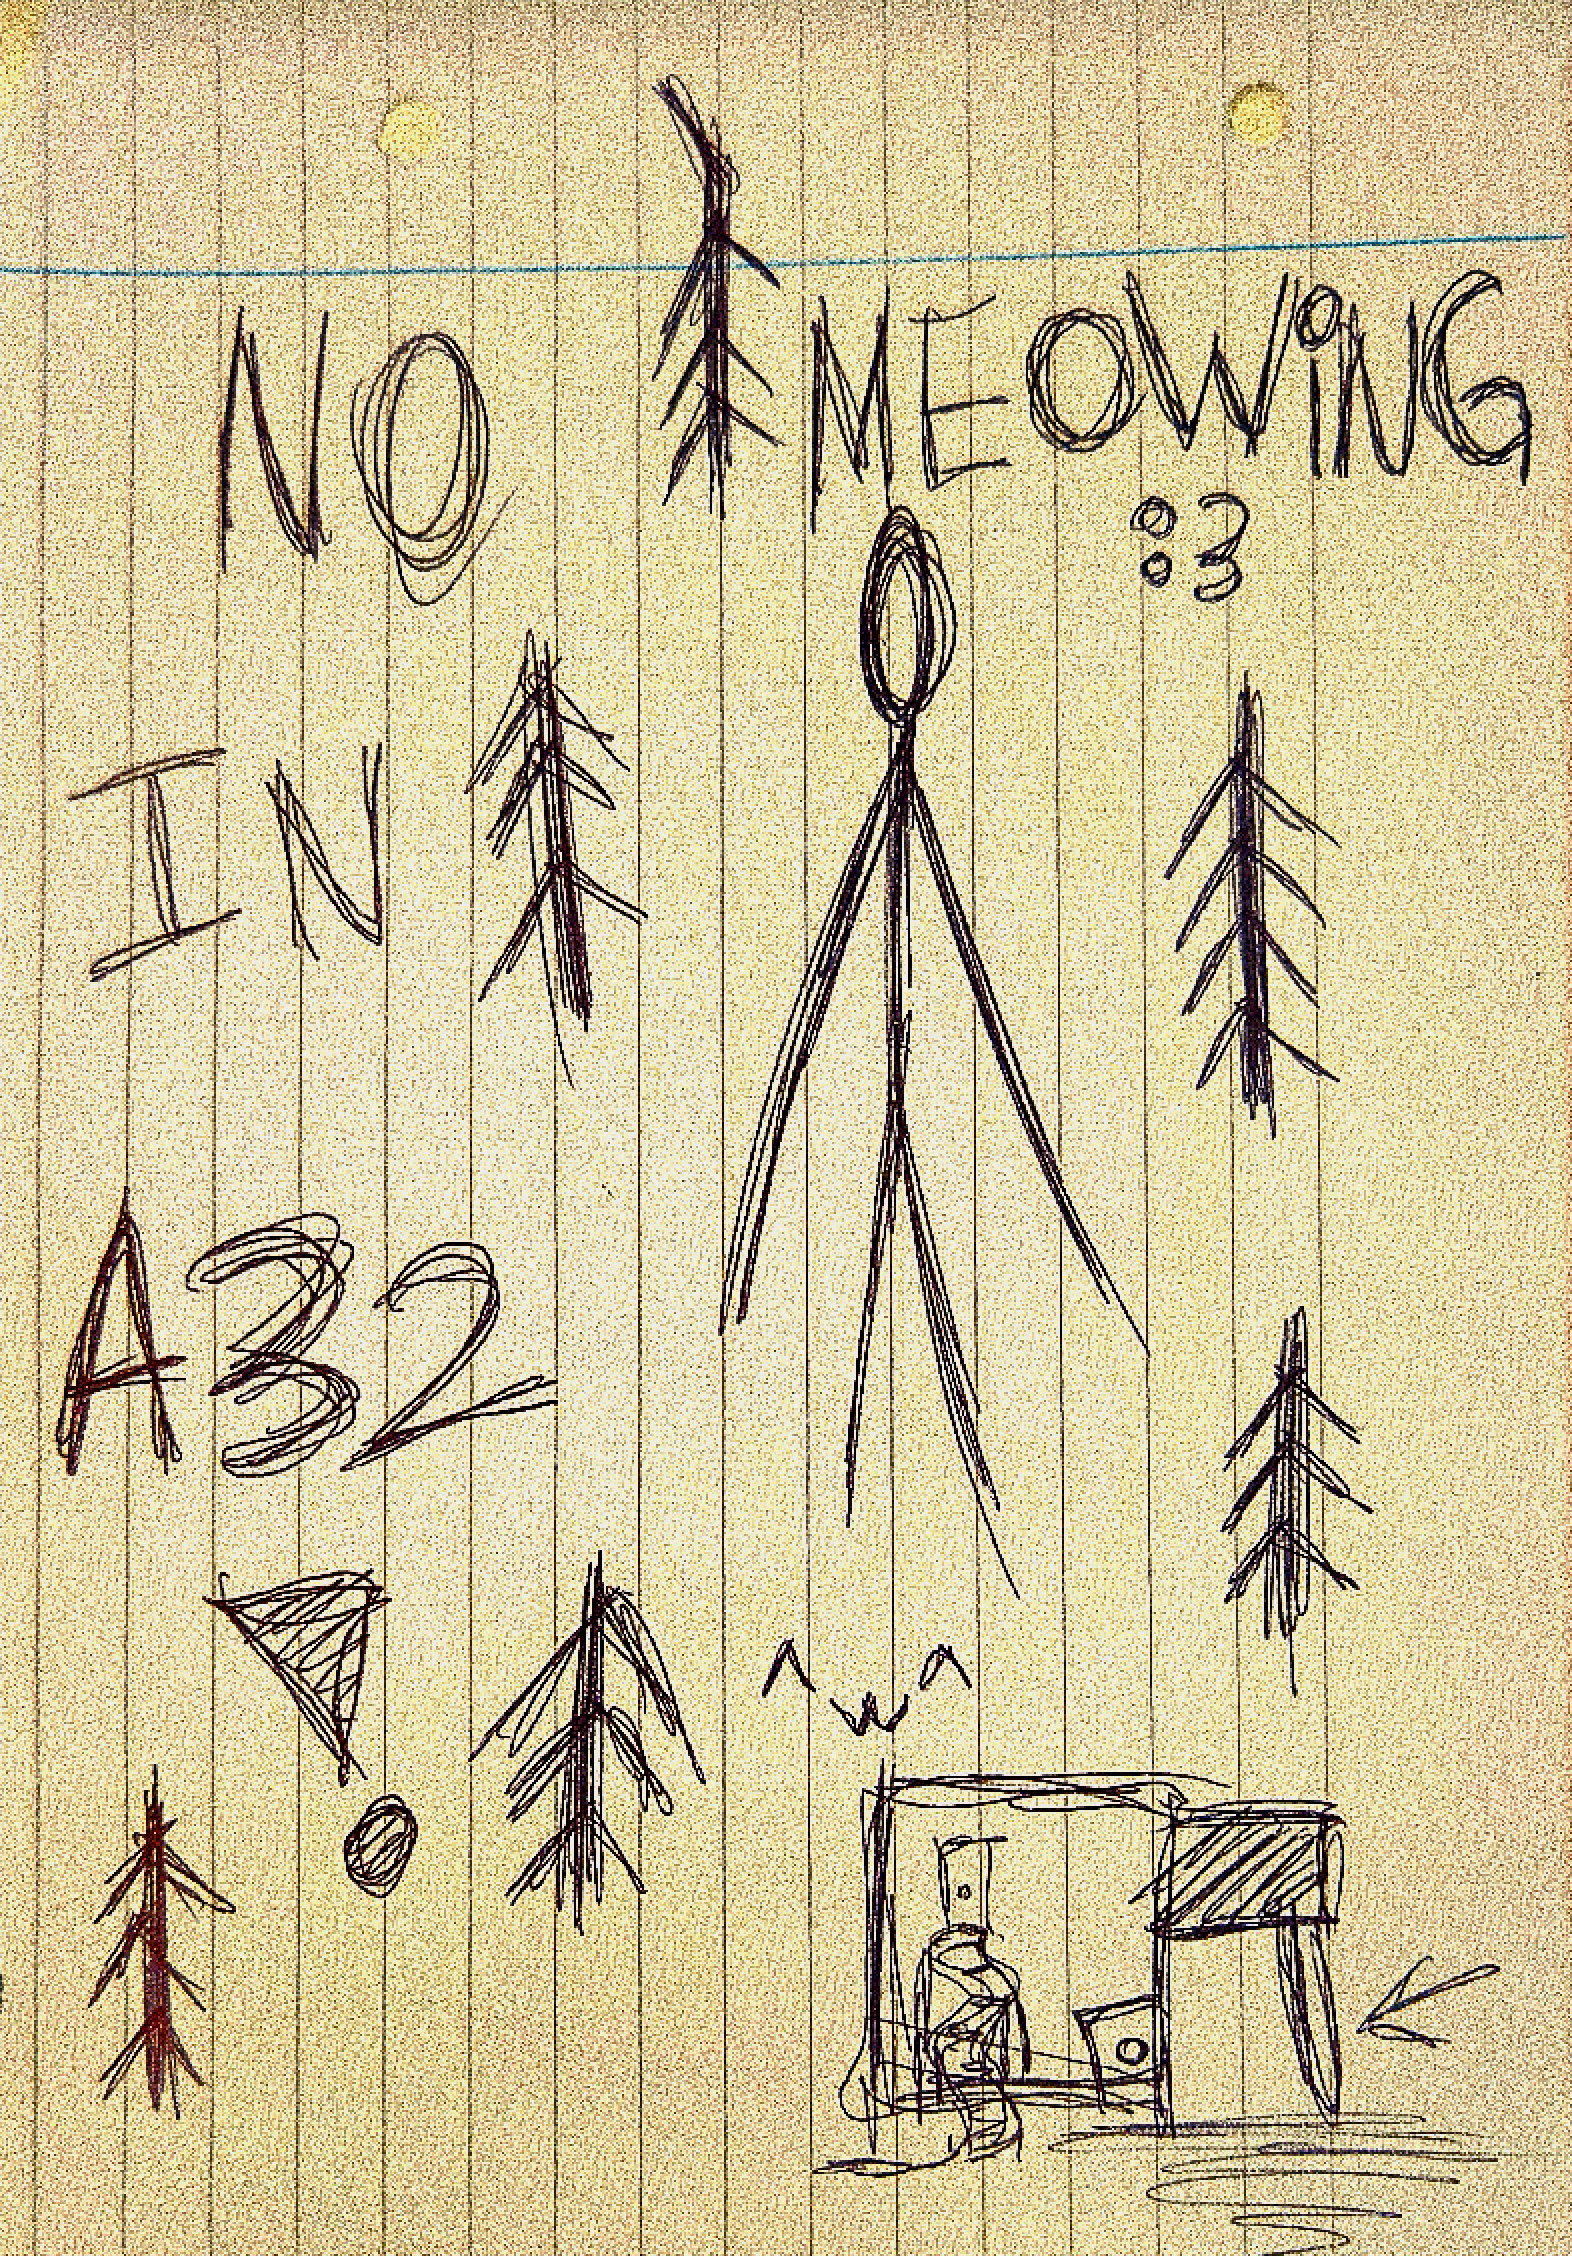 NO MEOWiNG
:3
IN
A32
!
^w^